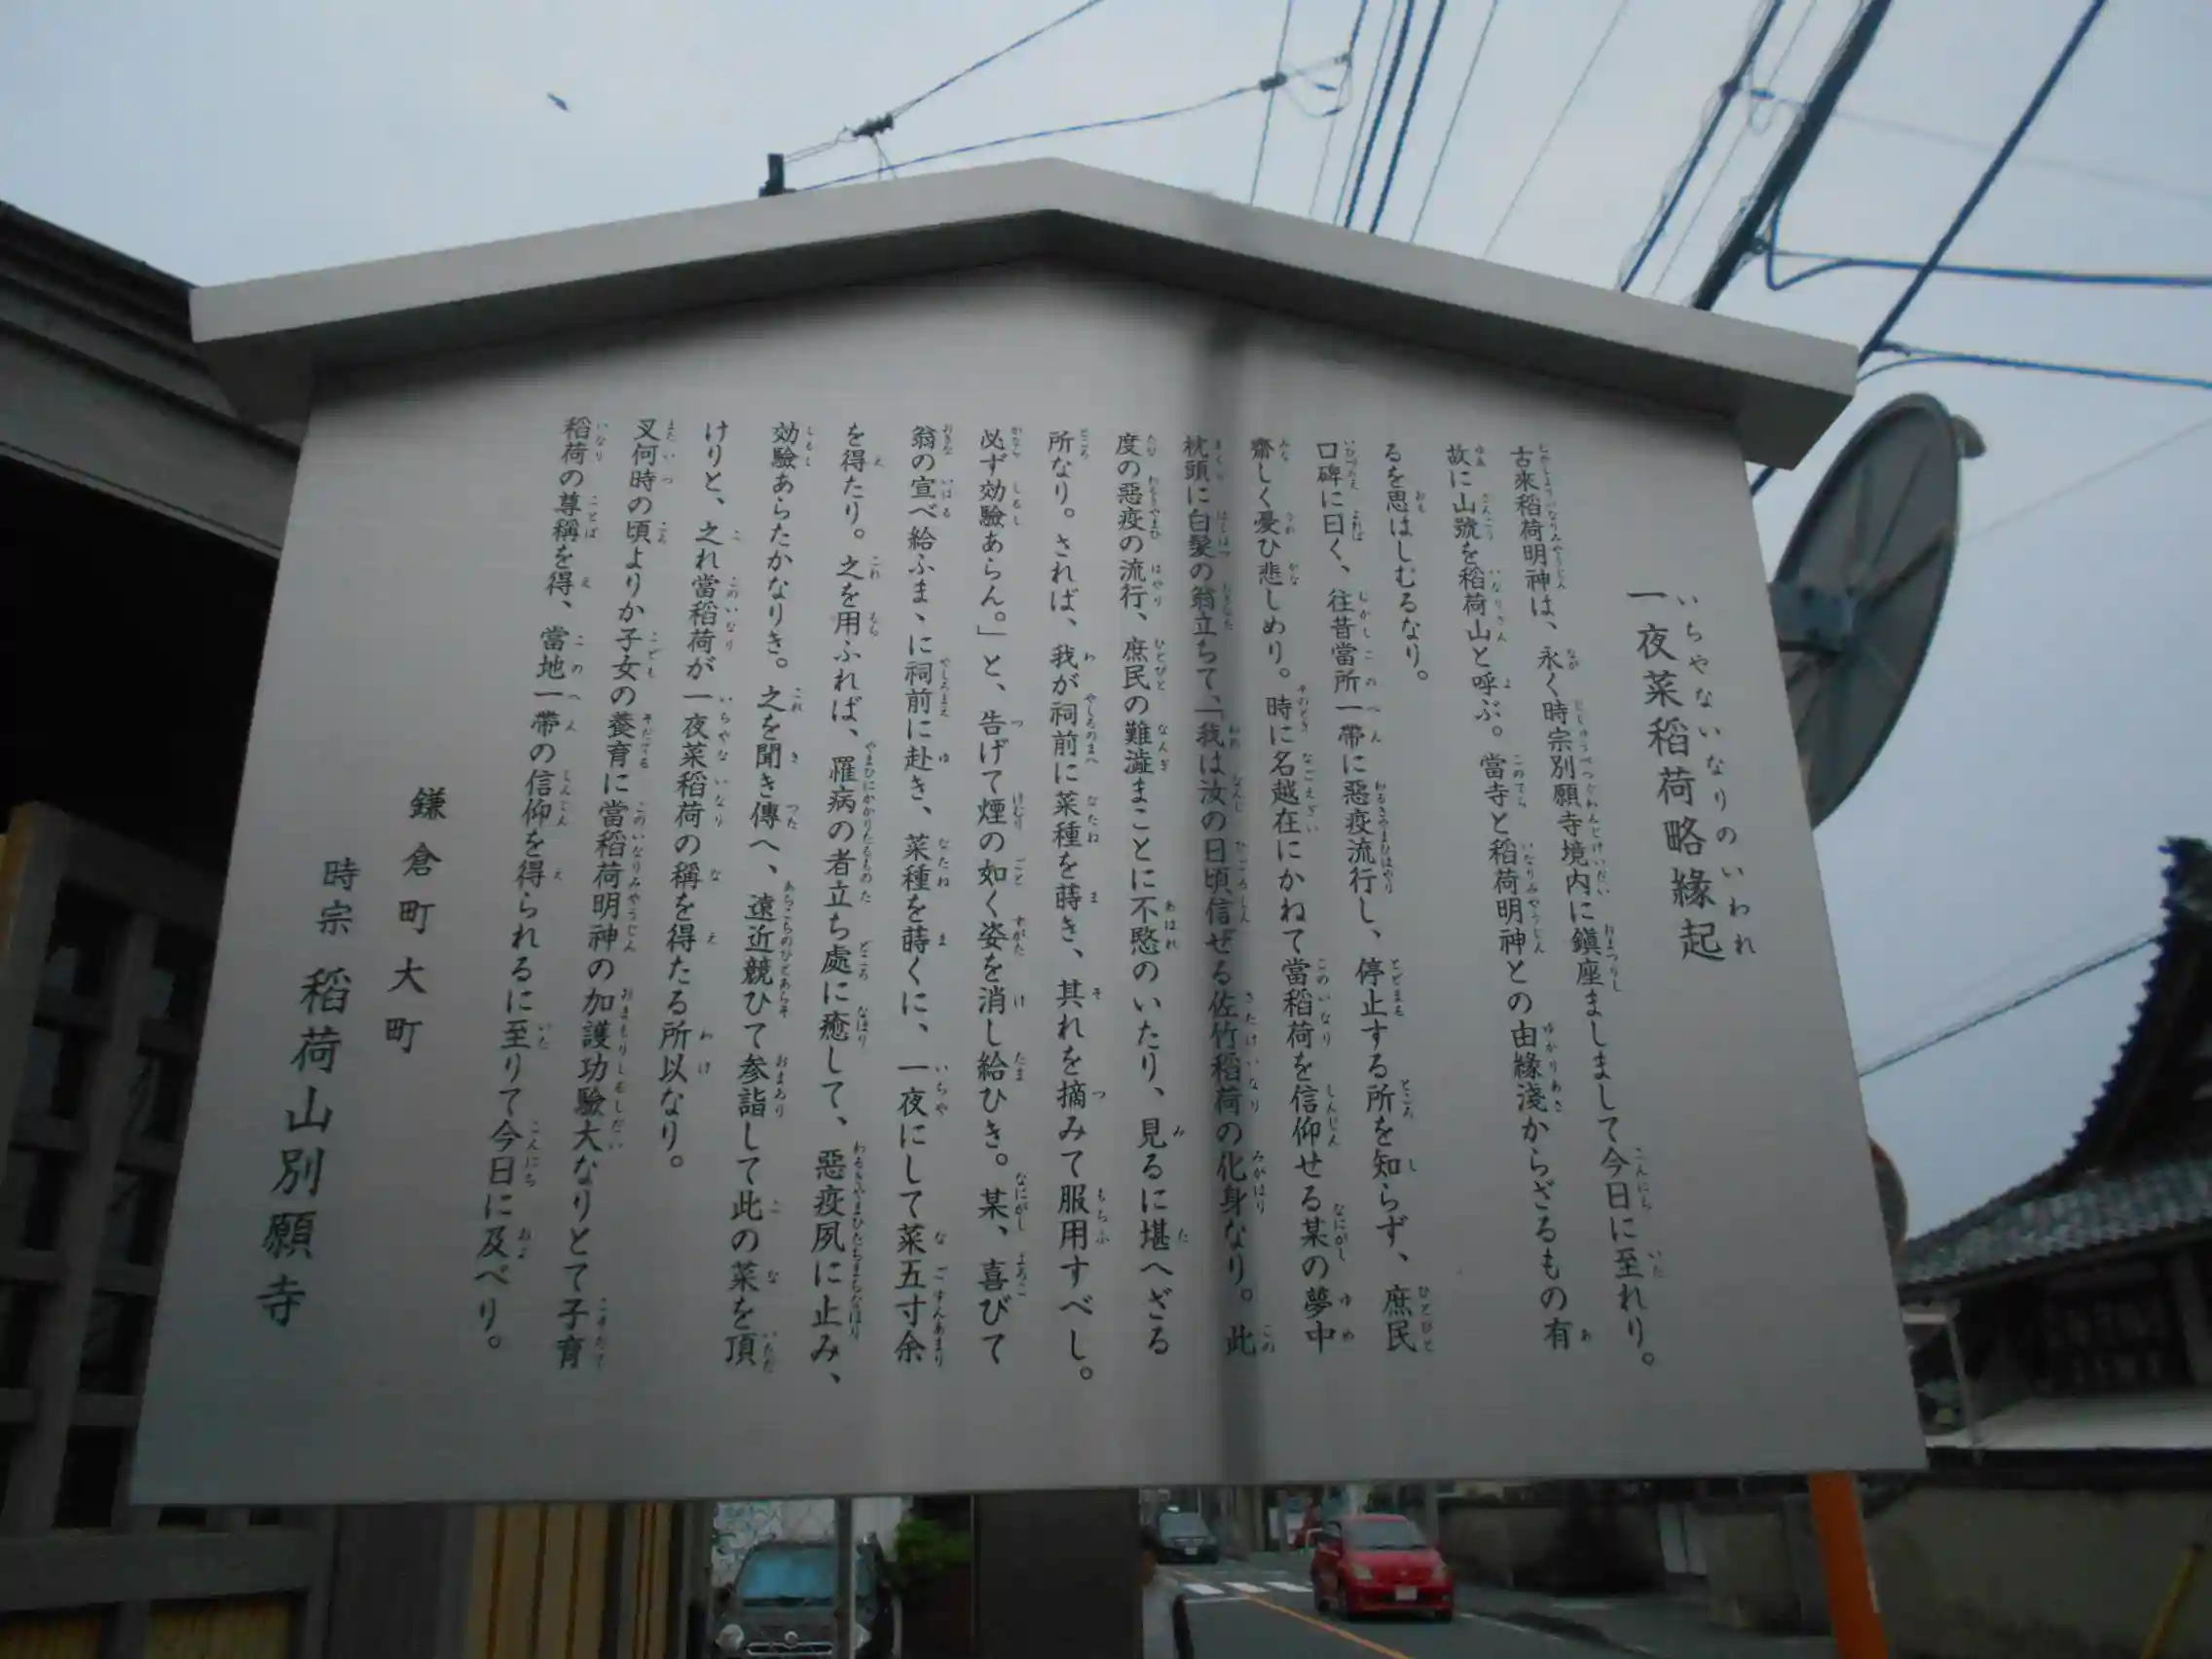 一夜菜稲荷略縁起
古来稲荷明神は、永く時宗別願寺境内に鎭座ましまして今日に至れり。
故に山號を稲荷山と呼ぶ。當寺と稲荷明神との由縁淺からざるもの有
るを思はしむるなり。
口碑に曰く、往昔當所一帯に惡疫流行し、停止する所を知らず、庶民
齋しく憂ひ悲しめり。時に名越在にかねて當稲荷を信仰せる某の夢中
枕頭に白髪の翁立ちて、「我は汝の日頃信ぜる佐竹稲荷の化身なり。此
度の惡疫の流行、庶民の難澁まことに不愍のいたり、見るに堪へざる
所なり。されば、我が祠前に菜種を蒔き、其れを摘みて服用すべし。
必ず効驗あらん。」と、告げて煙の如く姿を消し給ひき。某、喜びて
翁の宣べ給ふまゝに祠前に赴き、菜種を蒔くに、一夜にして菜五寸余
を得たり。之を用ふれば、罹病の者立ち處に癒して、惡疫夙に止み、
効驗あらたかなりき。之を聞き傳へ、遠近競ひて参詣して此の菜を頂
けりと、之れ當稲荷が一夜菜稲荷の稱を得たる所以なり。
又何時の頃よりか子女の養育に當稲荷明神の加護功驗大なりとて子育
稲荷の尊稱を得、當地一帯の信仰を得られるに至りて今日に及べり。
鎌倉町大町
時宗 稲荷山別願寺